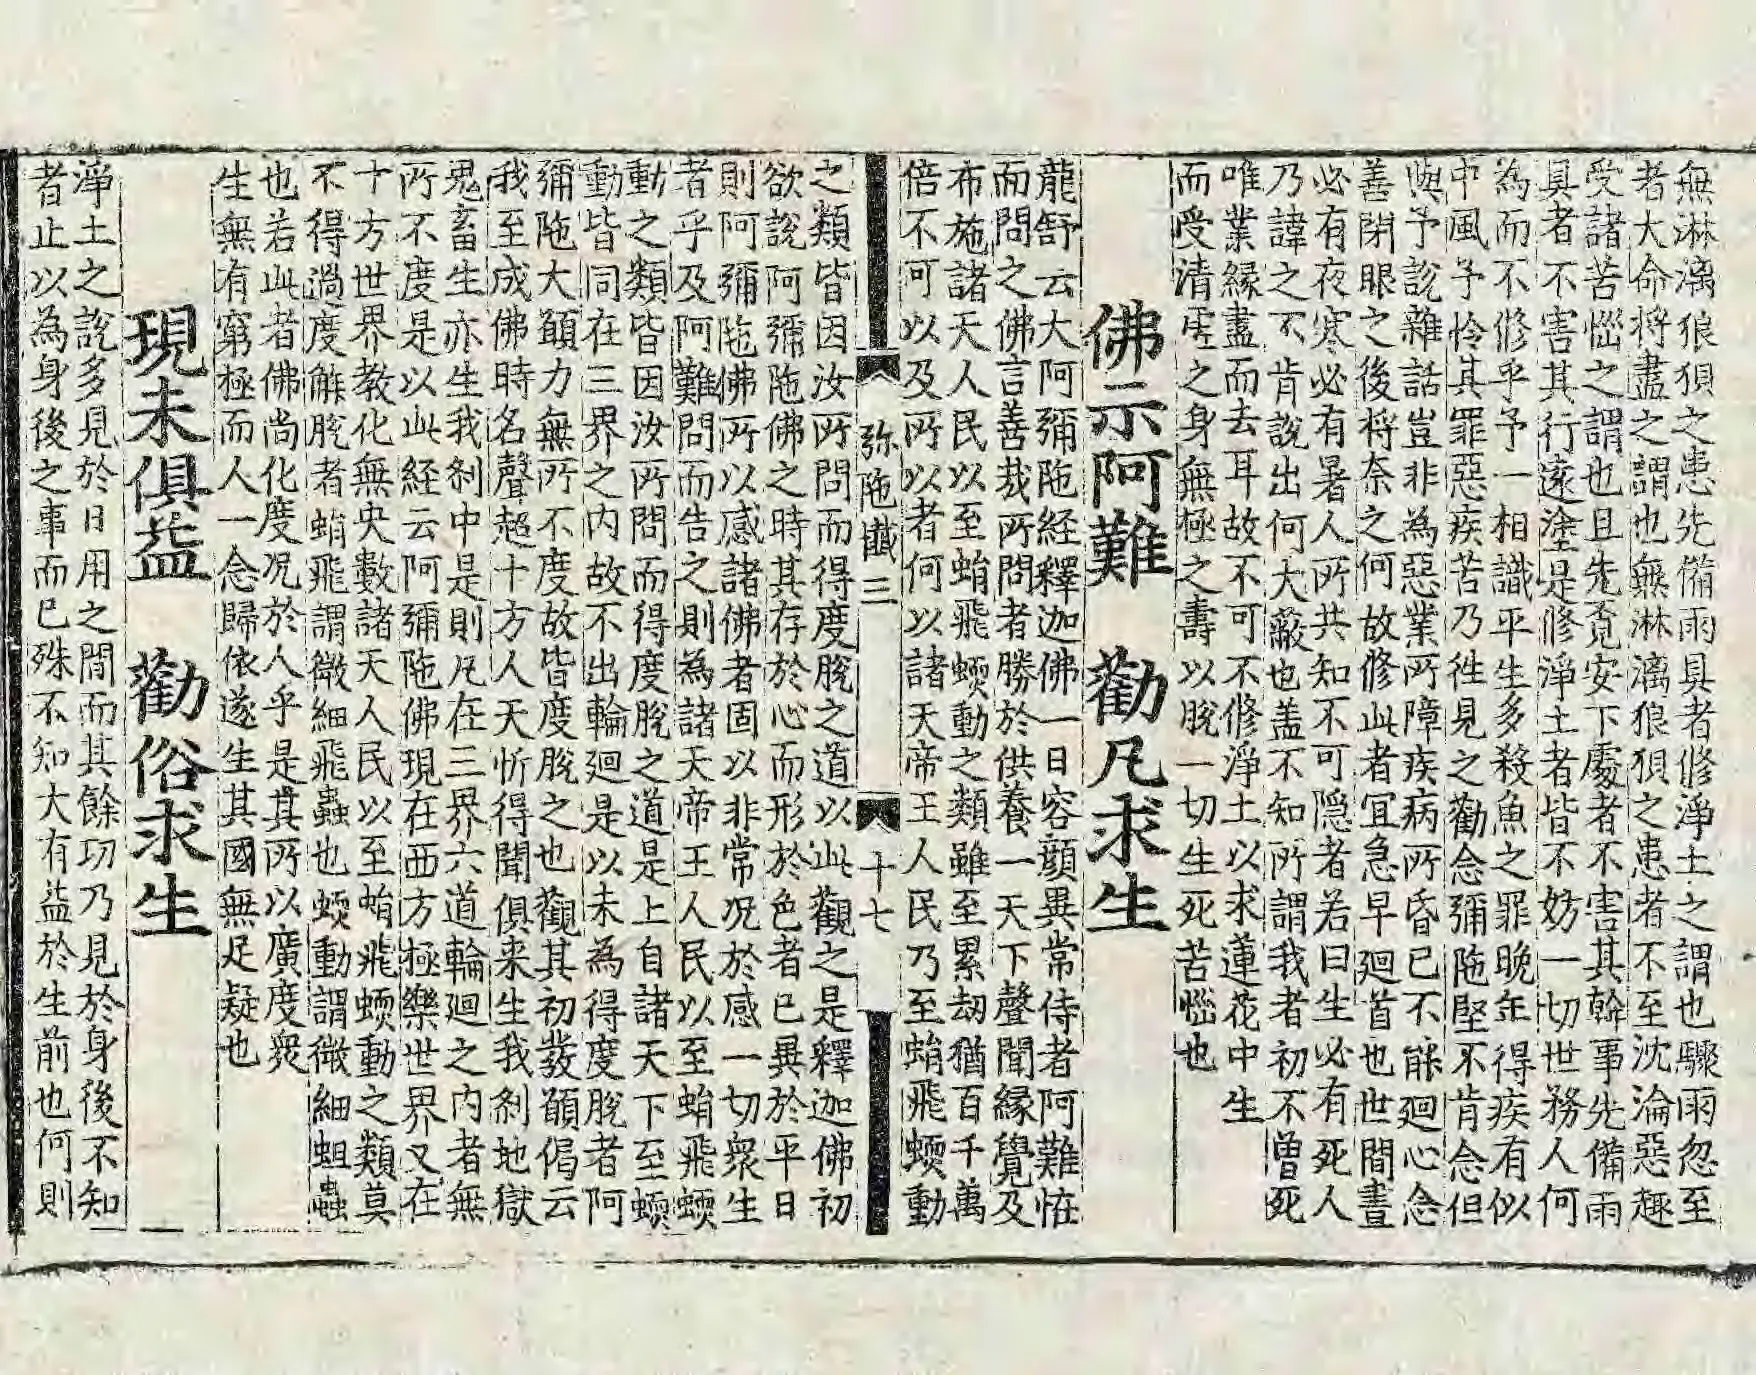 無淋漓狼狽之患先備雨具者修淨土之謂也驟雨忽至
者大命將盡之謂也無淋漓狼狽之患者不至沈淪惡趣
受諸苦惱之謂也且先覓安下處者不害其幹事先備雨
具者不害其行遠塗是修淨土者皆不妨一切世務人何
為而不修乎予一相識平生多殺魚之罪晚年得疾有似
中風予怜其罪惡疾苦乃徃見之勸念彌陁堅不肯念但
與予說雜話豈非為惡業所障疾病所昏已不能廻心念
善閉眼之後將奈之何故修此者宜急早廻首也世間晝
必有夜寒必有暑人所共知不可隱者若曰生必有死人
乃諱之不肯說出何大蔽也盖不知所謂我者初不曾死
唯業緣盡而去耳故不可不修淨土以求蓮花中生
而受清虛之身無極之壽以脫一切生死苦惱也
佛示阿難　勸凡求生
龍舒云大阿彌陁経釋迦佛一日容顔異常侍者阿難恠
而問之佛言善哉所問者勝於供養一天下聲聞緣覺及
布施諸天人民以至蜎飛蝡動之類雖至累劫猶百千萬
倍不可以及所以者何以諸天帝王人民乃至蜎飛蝡動
弥陁懺三　十七
之類皆因汝所問而得度脫之道以此觀之是釋迦佛初
欲說阿彌陁佛之時其存於心而形於色者已異於平日
則阿彌陁佛所以感諸佛者固以非常况於感一切衆生
者乎及阿難問而告之則為諸天帝王人民以至蜎飛蝡
動之類皆因汝所問而得度脫之道是上自諸天下至蝡
動皆同在三界之內故不出輪廻是以未為得度脫者阿
彌陁大願力無所不度故皆度脫之也觀其初發願偈云
我至成佛時名聲超十方人天忻得聞俱来生我刹地獄
鬼畜生亦生我刹中是則凡在三界六道輪廻之內者無
所不度是以此経云阿彌陁佛現在西方極樂世界又在
十方世界教化無央數諸天人民以至蜎飛蝡動之類莫
不得過度解脫者蜎飛謂微細飛蟲也蝡動謂微細蛆蟲
也若此者佛尚化度况於人乎是其所以廣度衆
生無有窮極而人一念歸依遂生其國無足疑也
現未俱益　勸俗求生
淨土之說多見於日用之間而其餘功乃見於身後不知
者止以為身後之事而已殊不知大有益於生前也何則